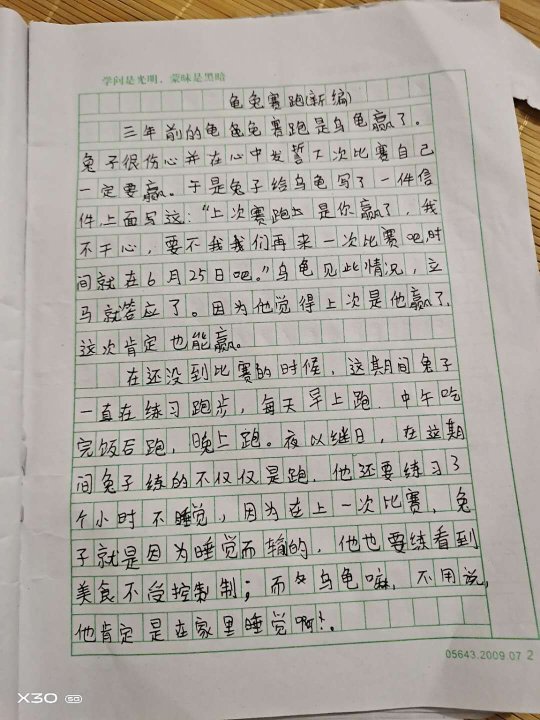 学问是光明，蒙昧是黑暗
龟兔赛跑(新编)
三年前的龟兔赛跑是乌龟赢了。
兔子很伤心并在心中发誓下次比赛自己
一定要赢。于是兔子给乌龟写了一件信
件,上面写这:“上次赛跑上是你赢了，我
不干心，要不我我们再来一次比赛吧,时
间就在6月25日吧。”乌龟见此情况，立
马就答应了。因为他觉得上次是他赢了,
这次肯定也能赢。
在还没到比赛的时候，这期间兔子
一直在练习跑步，每天早上跑.中午吃
完饭后跑，晚上跑。夜以继日，在这期
间兔子练的不仅仅是跑.他还要练习3
个小时不睡觉，因为在上一次比赛，兔
子就是因为睡觉而输的，他也要练看到
美食不受控制制；而乌龟嘛，不用说，
他肯定是在家里睡觉啊!.
05643.2009.07 2
X30 5G